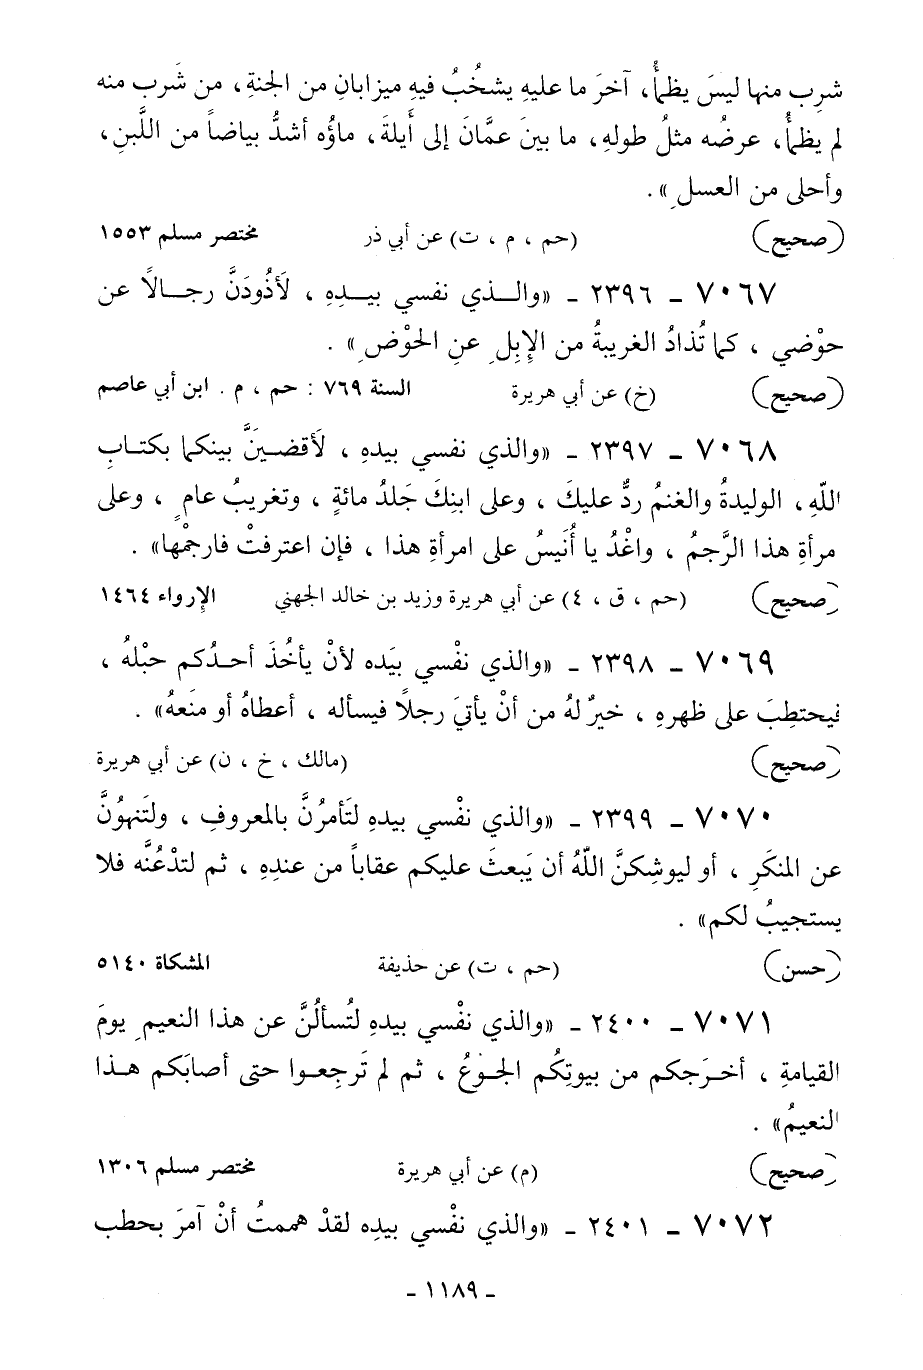 شرِب منها ليسَ يظمأُ، آخرَ ما عليهِ يشخُبُ فيهِ ميزابانِ من الجنةِ، من شَرب منه
لم يظمأُ، عرضُه مثلُ طولهِ، ما بينَ عمَّانَ إلى أَيلةَ، ماؤُه أشدُّ بياضاً من اللَّبنِ،
وأحلى من العسلِ».
(صحيح) (حم ، م ، ت) عن أبي ذر مختصر مسلم ١٥٥٣
٧٠٦٧ ـ ٢٣٩٦ ـ «والـذي نفسي بيـدِهِ ، لَأذُودَنَّ رجـالاً عن
حوْضي ، كما تُذادُ الغريبةُ من الإِبِلِ عنِ الحوْضِ» .
(صحيح) (خ) عن أبي هريرة السنة ٧٦٩ : حم ، م . ابن أبي عاصم
٧٠٦٨ ـ ٢٣٩٧ ـ «والذي نفسي بيدهِ ، لَأقضـينَّ بينكما بكتـابِ
اللّهِ ، الوليدةُ والغنمُ ردٌّ عليكَ ، وعلى ابنِكَ جَلدُ مائةٍ ، وتغريبُ عامٍ ، وعلى
مرأةِ هذا الرَّجمُ ، واغْدُ يا أُنَيسُ على امرأةِ هذا ، فإن اعترفتْ فارجمْها» .
(صحيح) (حم ، ق ، ٤) عن أبي هريرة وزيد بن خالد الجهني الإِرواء ١٤٦٤
٧٠٦٩ ـ ٢٣٩٨ ـ «والذي نفْسي بيَده لأنْ يأخُذَ أحـدُكم حبْلهُ ،
فيحتطِبَ على ظهرهِ ، خيرٌ لهُ من أنْ يأتيَ رجلاً فيسأله ، أعطاهُ أو منَعهُ» .
(صحيح) (مالك ، خ ، ن) عن أبي هريرة
٧٠٧٠ ـ ٢٣٩٩ ـ «والذي نفْسي بيدهِ لتَأمرُنَّ بالمعروفِ ، ولتَنهوُنَّ
عن المنكَرِ ، أو ليوشِكنَّ اللّهُ أن يَبعثَ عليكم عقاباً من عندِهِ ، ثم لتدْعُنَّه فلا
يستجيبُ لكم» .
(حسن) (حم ، ت) عن حذيفة المشكاة ٥١٤٠
٧٠٧١ ـ ٢٤٠٠ ـ «والذي نفْسي بيدهِ لتُسألُنَّ عن هذا النعيمِ يومَ
القيامةِ ، أخـرَجكم من بيوتِكُم الجـوْعُ ، ثم لم تَرجِعـوا حتى أصابَكم هـذا
النعيمُ» .
(صحيح) (م) عن أبي هريرة مختصر مسلم ١٣٠٦
٧٠٧٢ ـ ٢٤٠١ ـ «والذي نفْسي بيدِه لقدْ هممتُ أنْ آمرَ بحطب
ـ ١١٨٩ ـ